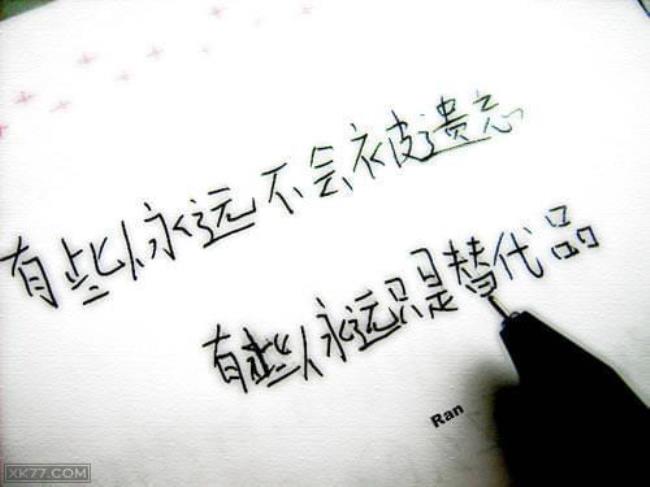 有些人永远不会被遗忘
有些人永远只是替代品
Ran
XK77.COM